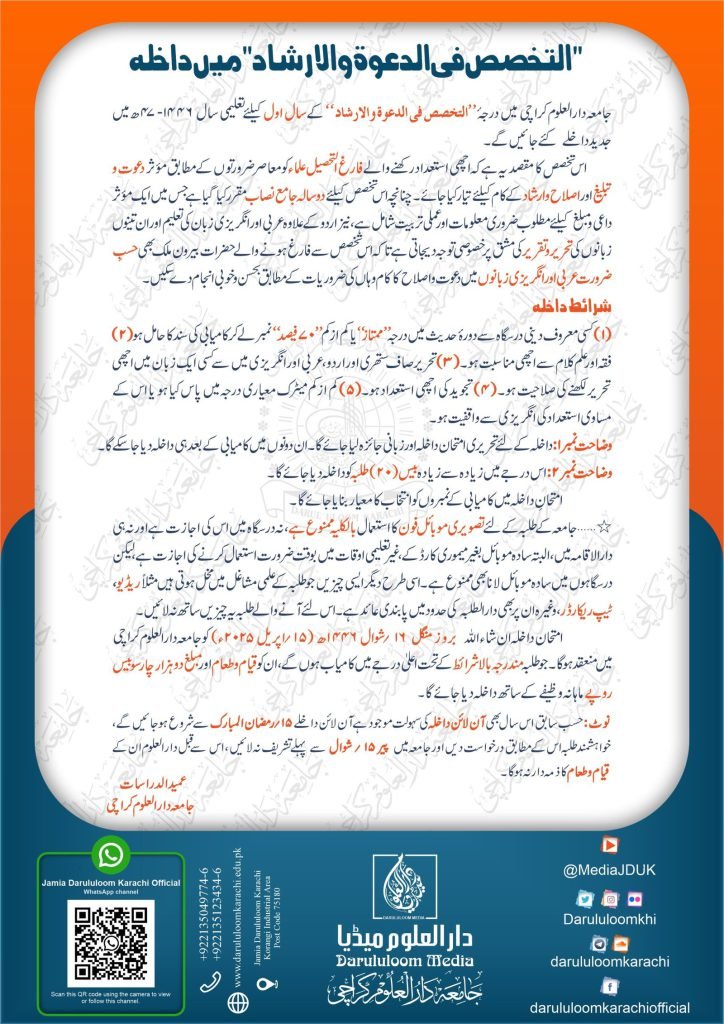 "التخصص فی الدعوۃ والارشاد" میں داخلہ
جامعہ دارالعلوم کراچی میں درجۂ ’’التخصص فی الدعوۃ والارشاد‘‘ کے سال اول کیلئے تعلیمی سال ۱۴۴۶-۴۷ھ میں
جدید داخلے کئے جائیں گے۔
اس تخصص کا مقصد یہ ہے کہ اچھی استعداد رکھنے والے فارغ التحصیل علماء کو معاصر ضرورتوں کے مطابق مؤثر دعوت و
تبلیغ اور اصلاح وارشاد کے کام کیلئے تیار کیا جائے۔ چنانچہ اس تخصص کیلئے دوسالہ جامع نصاب مقرر کیا گیا ہے جس میں ایک مؤثر
داعی و مبلغ کیلئے مطلوب ضروری معلومات اور عملی تربیت شامل ہے، نیز اردو کے علاوہ عربی اور انگریزی زبان کی تعلیم اور ان تینوں
زبانوں کی تحریر وتقریر کی مشق پر خصوصی توجہ دیجاتی ہے تاکہ اس تخصص سے فارغ ہونے والے حضرات بیرون ملک بھی حسبِ
ضرورت عربی اور انگریزی زبانوں میں دعوت واصلاح کا کام وہاں کی ضروریات کے مطابق بحسن وخوبی انجام دے سکیں۔
شرائط داخلہ
(۱) کسی معروف دینی درسگاہ سے دورۂ حدیث میں درجہ ’’ممتاز‘‘ یا کم از کم ’’۷۰ فیصد‘‘ نمبر لے کر کامیابی کی سند کا حامل ہو (۲)
فقہ اور علم کلام سے اچھی مناسبت ہو۔ (۳) تحریر صاف ستھری اور اردو، عربی اور انگریزی میں سے کسی ایک زبان میں اچھی
تحریر لکھنے کی صلاحیت ہو۔ (۴) تجوید کی اچھی استعداد ہو۔ (۵) کم از کم میٹرک معیاری درجہ میں پاس کیا ہو یا اس کے
مساوی استعداد کی انگریزی سے واقفیت ہو۔
وضاحت نمبر۱: داخلہ کے لئے تحریری امتحان داخلہ اور زبانی جائزہ لیا جائے گا۔ ان دونوں میں کامیابی کے بعد ہی داخلہ دیا جاسکے گا۔
وضاحت نمبر۲: اس درجے میں زیادہ سے زیادہ بیس (۲۰) طلبہ کو داخلہ دیا جائے گا۔
امتحانِ داخلہ میں کامیابی کے نمبروں کو انتخاب کا معیار بنایا جائے گا۔
☆...... جامعہ کے طلبہ کے لئے تصویری موبائل فون کا استعمال بالکلیہ ممنوع ہے، نہ درسگاہ میں اس کی اجازت ہے اور نہ ہی
دارالاقامہ میں، البتہ سادہ موبائل بغیر میموری کارڈ کے، غیر تعلیمی اوقات میں بوقت ضرورت استعمال کرنے کی اجازت ہے، لیکن
درسگاہوں میں سادہ موبائل لانا بھی ممنوع ہے۔ اسی طرح دیگر ایسی چیزیں جو طلبہ کے علمی مشاغل میں مخل ہوتی ہیں مثلاً ریڈیو،
ٹیپ ریکارڈر، وغیرہ ان پر بھی دارالطلبہ کی حدود میں پابندی عائد ہے۔ اس لئے آنے والے طلبہ یہ چیزیں ساتھ نہ لائیں۔
امتحان داخلہ ان شاء اللہ بروز منگل ۱۶/شوال ۱۴۴۶ھ (۱۵/اپریل ۲۰۲۵ء) کو جامعہ دارالعلوم کراچی
میں منعقد ہوگا۔ جو طلبہ مندرجہ بالا شرائط کے تحت اعلیٰ درجے میں کامیاب ہوں گے، ان کو قیام وطعام اور مبلغ دو ہزار چار سو بیس
روپے ماہانہ وظیفے کے ساتھ داخلہ دیا جائے گا۔
نوٹ: حسب سابق اس سال بھی آن لائن داخلہ کی سہولت موجود ہے آن لائن داخلے ۱۵/رمضان المبارک سے شروع ہوجائیں گے،
خواہشمند طلبہ اس کے مطابق درخواست دیں اور جامعہ میں پیر ۱۵/شوال سے پہلے تشریف نہ لائیں، اس سے قبل دارالعلوم ان کے
قیام وطعام کا ذمہ دار نہ ہوگا۔
عمید الدراسات
جامعہ دارالعلوم کراچی
Jamia Darululoom Karachi Official
WhatsApp channel
Scan this QR code using the camera to view
or follow this channel.
+922135049774-6
+922135123434-6
www.darululoomkarachi.edu.pk
Jamia Darululoom Karachi
Korangi Industrial Area
Post Code 75180
DARULULOOM MEDIA
دارالعلوم میڈیا
Darululoom Media
جامعہ دارالعلوم کراچی
@MediaJDUK
Darululoomkhi
darululoomkarachi
darululoomkarachiofficial